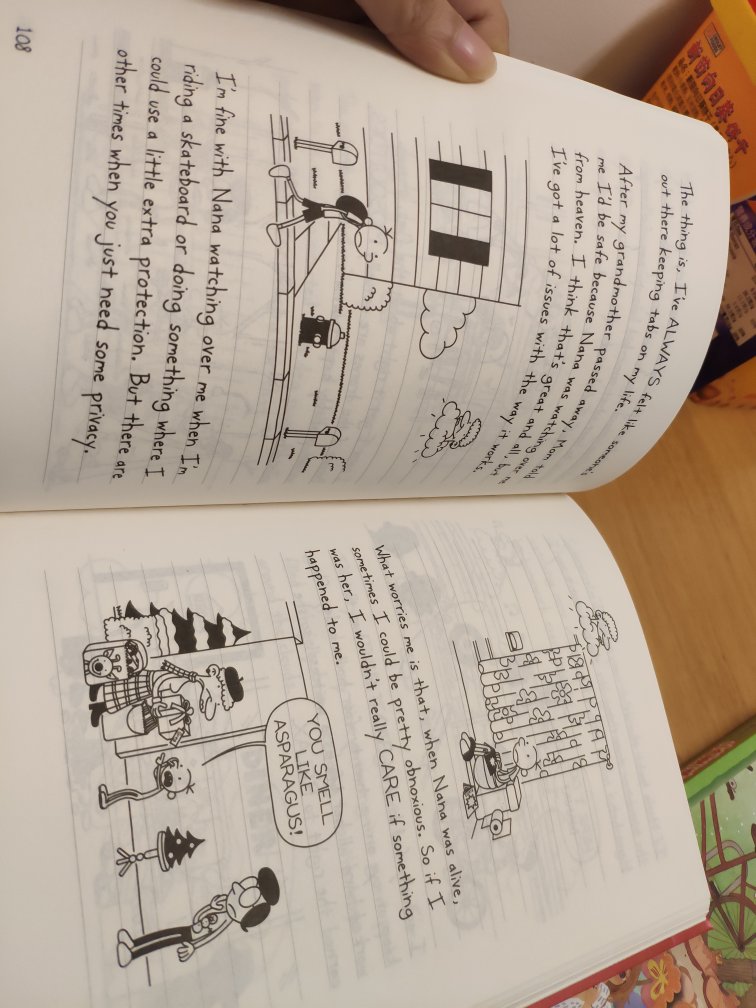 The thing is, I've ALWAYS felt like someone's
out there keeping tabs on my life.
After my grandmother passed away, Mom told
me I'd be safe because Nana was watching over me
from heaven. I think that's great and all, but
I've got a lot of issues with the way it works.
I'm fine with Nana watching over me when I'm
riding a skateboard or doing something where I
could use a little extra protection. But there are
other times when you just need some privacy.
108
What worries me is that, when Nana was alive,
sometimes I could be pretty obnoxious. So if I
was her, I wouldn't really CARE if something
happened to me.
YOU SMELL
LIKE
ASPARAGUS!